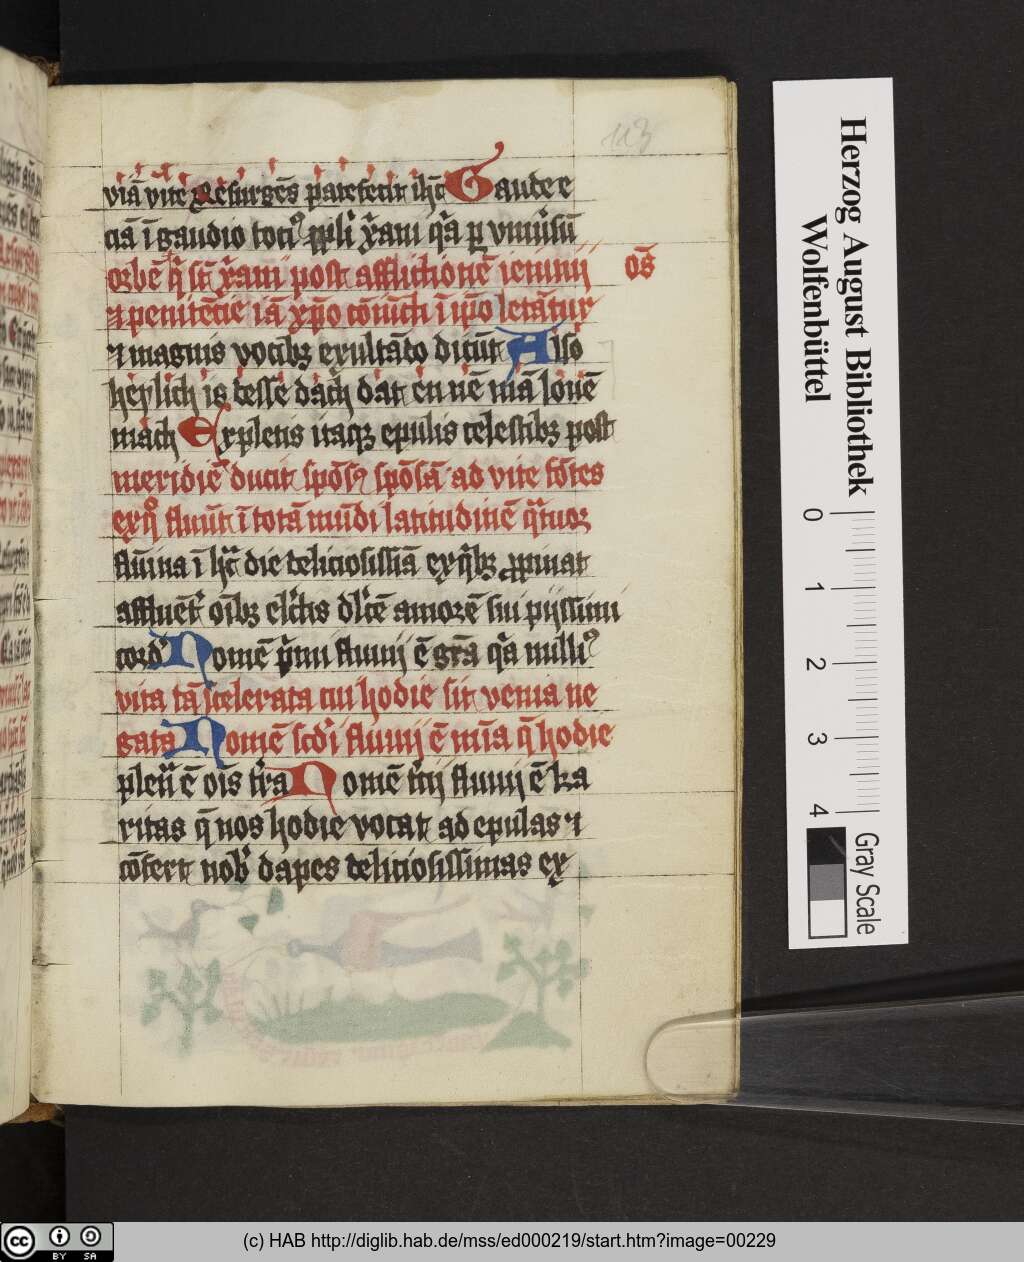 113
viā vite Resurgēs patefecit ih̄c Gaude e
ciā ī gaudio toci⁹ ppl'i x̄ani q̄a p vniu'sū
orbē q̄ st̄ x̄ani post afflictionē ieiunij oēs
⁊ penitētie iā xp̄o cōiūcti ī ip̄o letātur
⁊ magnis vocibꝫ exultādo dicūt Also
heylich is desse dach dat en nē mā louē
mach Expletis itaqꝫ epulis celestibꝫ post
meridiē ducit spōs⁹ spōsā ad vite fōtes
ex q' fluūt ī totā mūdi latitudinē q̄tuor
flūina ī h̄c die deliciosissīa ex q'bꝫ ppinat
affluēt' oībꝫ el'c̄is dl'cē amorē sui pijssimi
cord' Nomē p'mi fluuij ē gr̄a q̄a nulli⁹
vita tā scelerata cui hodie sit venia ne
gata Nomē sc̄d'i fluuij ē mīa q̄ hodie
plen' ē oīs t'ra Nomē t'cij fluuij ē ka
ritas q̄ nos hodie vocat ad epulas ⁊
cōfert nob' dapes deliciosissimas ex
Herzog August Bibliothek
Wolfenbüttel
0 1 2 3 4
Gray Scale
cc BY SA
(c) HAB http://diglib.hab.de/mss/ed000219/start.htm?image=00229